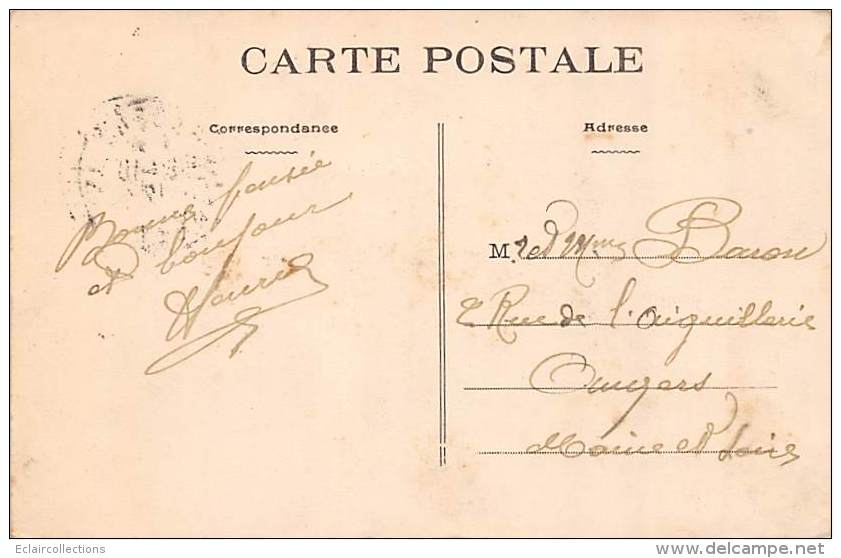 CARTE POSTALE
Correspondance
Adresse
Bonne pensée
et bonjour
M. et Mme Baron
2 Rue de l'Aiguillerie
Angers
Maine et Loire
Eclaircollections
delcampe.net